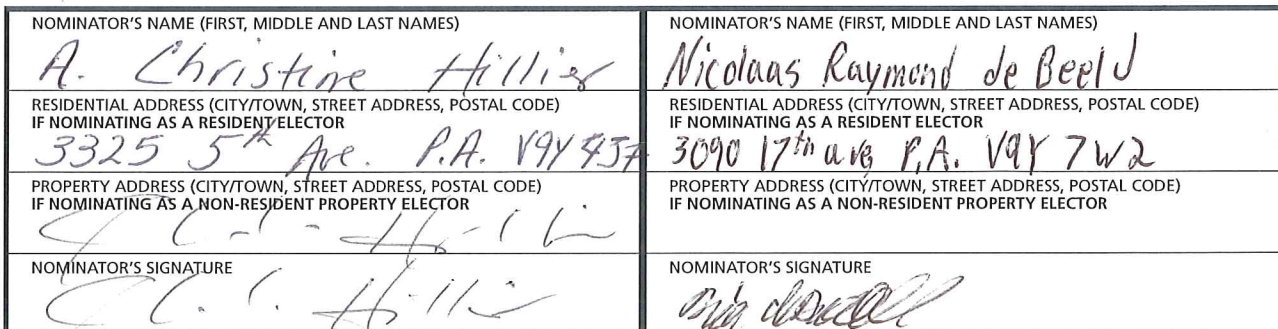 NOMINATOR'S NAME (FIRST, MIDDLE AND LAST NAMES)
A. Christine Hillier
RESIDENTIAL ADDRESS (CITY/TOWN, STREET ADDRESS, POSTAL CODE)
IF NOMINATING AS A RESIDENT ELECTOR
3325 5th Ave. P.A. V9Y
PROPERTY ADDRESS (CITY/TOWN, STREET ADDRESS, POSTAL CODE)
IF NOMINATING AS A NON-RESIDENT PROPERTY ELECTOR
NOMINATOR'S SIGNATURE
Hillier
NOMINATOR'S NAME (FIRST, MIDDLE AND LAST NAMES)
Nicolaas Raymond de
RESIDENTIAL ADDRESS (CITY/TOWN, STREET ADDRESS, POSTAL CODE)
IF NOMINATING AS A RESIDENT ELECTOR
3090 17th ave P.A. V9Y 7W2
PROPERTY ADDRESS (CITY/TOWN, STREET ADDRESS, POSTAL CODE)
IF NOMINATING AS A NON-RESIDENT PROPERTY ELECTOR
NOMINATOR'S SIGNATURE